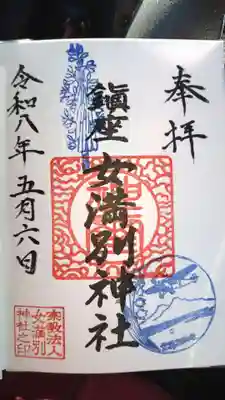 奉拝
鎮座 女満別神社
令和八年 五月六日
宗教法人
女満別
神社之印